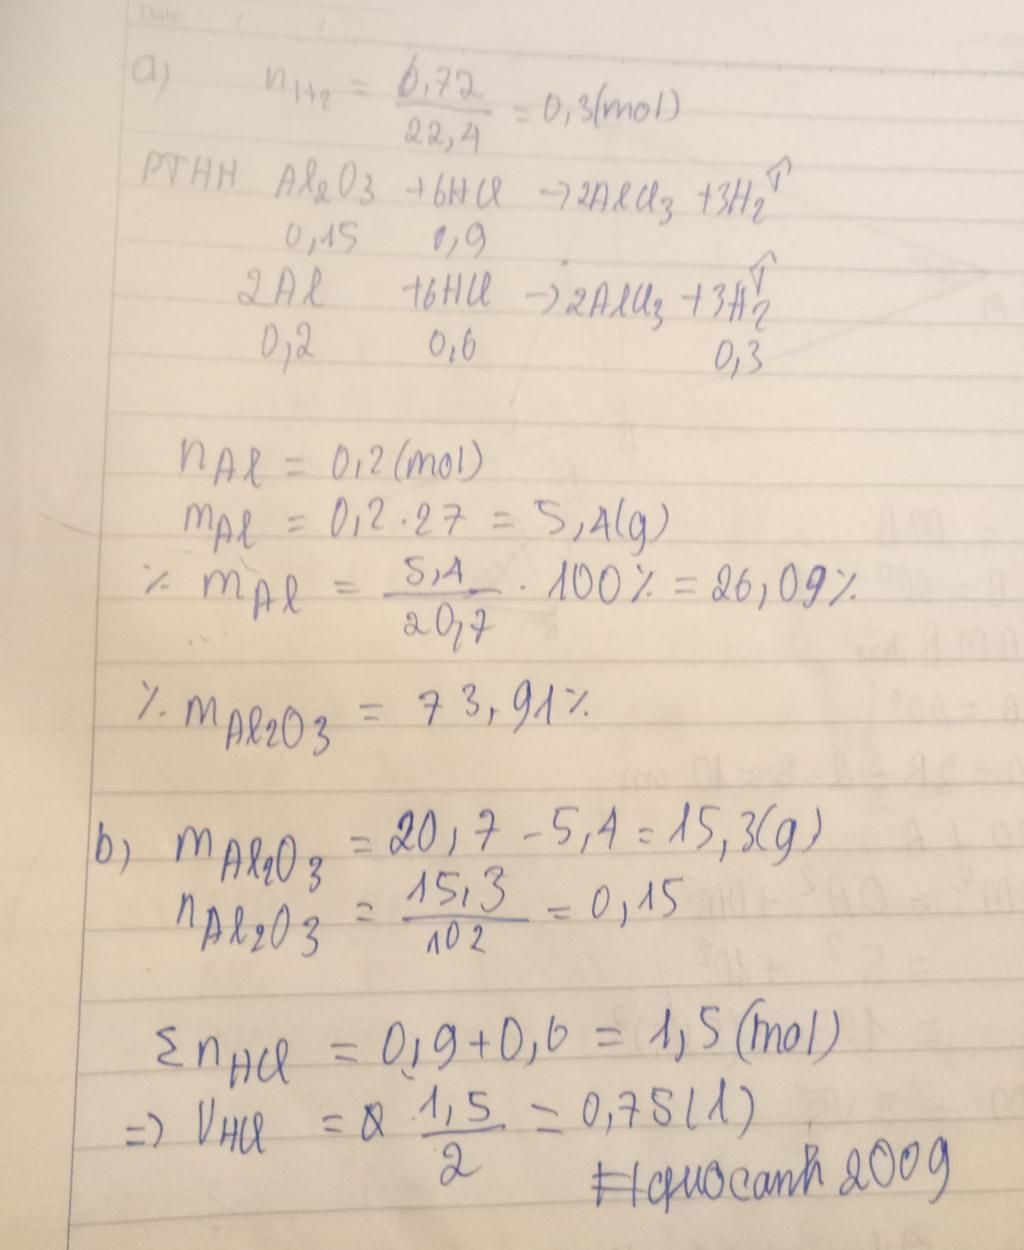 Date / /
a) nH2 = 6,72/22,4 = 0,3(mol)
PTHH Al2O3 + 6HCl → 2AlCl3 + 3H2↑
0,15 0,9
2Al + 6HCl → 2AlCl3 + 3H2↑
0,2 0,6 0,3
nAl = 0,2(mol)
mAl = 0,2.27 = 5,4(g)
% mAl = 5,4/20,7 . 100% = 26,09%
% mAl2O3 = 73,91%
b) mAl2O3 = 20,7 - 5,4 = 15,3(g)
nAl2O3 = 15,3/102 = 0,15
ΣnHCl = 0,9+0,6 = 1,5(mol)
=> VHCl = 1,5/2 = 0,75(l)
#quocanh2009